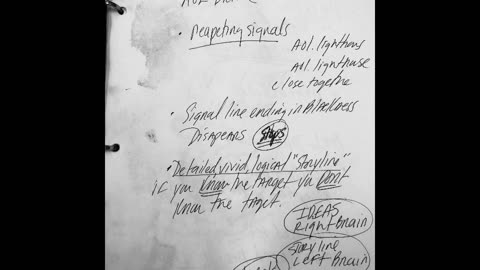 • Reapeting signals
AOL. lighthous
AOL lighthouse
close together
• Signal line ending in Blackness
Disapears stops
• Detailed, vivid, logical "Storyline"
if you Know the target you Dont
know the target.
IDEAS
Right Brain
Storyline
Left Brain